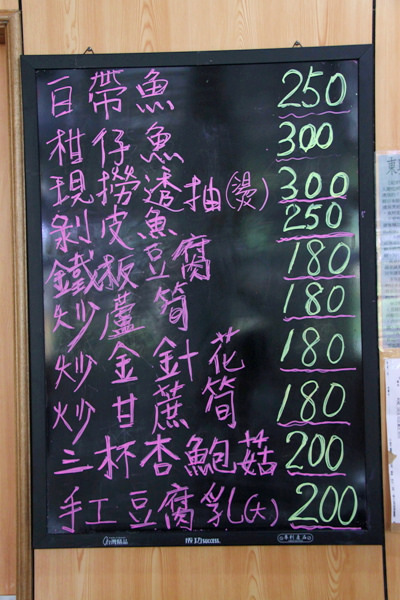 白帶魚 250
柑仔魚 300
現撈透抽(燙) 300
剝皮魚 250
鐵板豆腐 180
炒蘆筍 180
炒金針花 180
炒甘蔗筍 180
三杯杏鮑菇 200
手工豆腐乳(大) 200